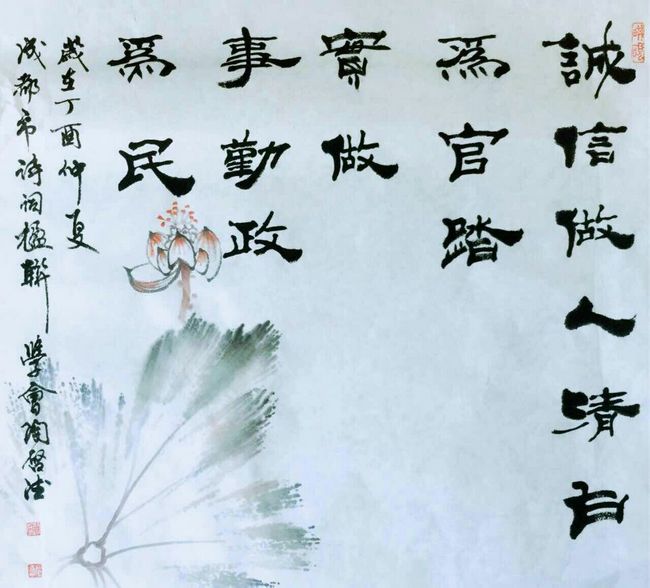 誠信做人清白
為官踏
實做
事勤政
為民
歲在丁酉仲夏
成都市詩詞楹聯學會陶啓